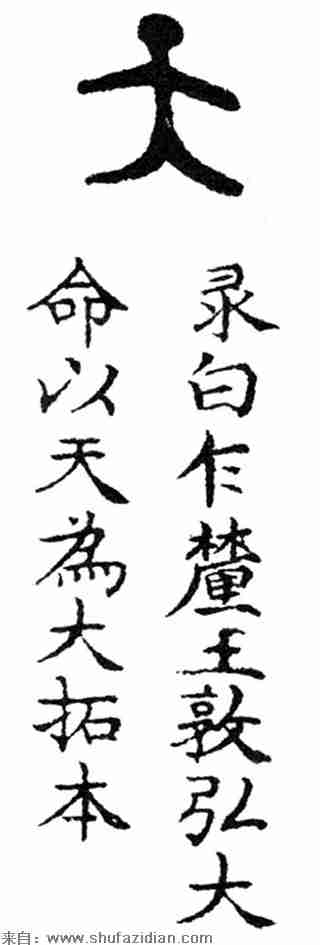 天
录白乍釐王敦弘大
命以天為大拓本
来自：www.shufazidian.com